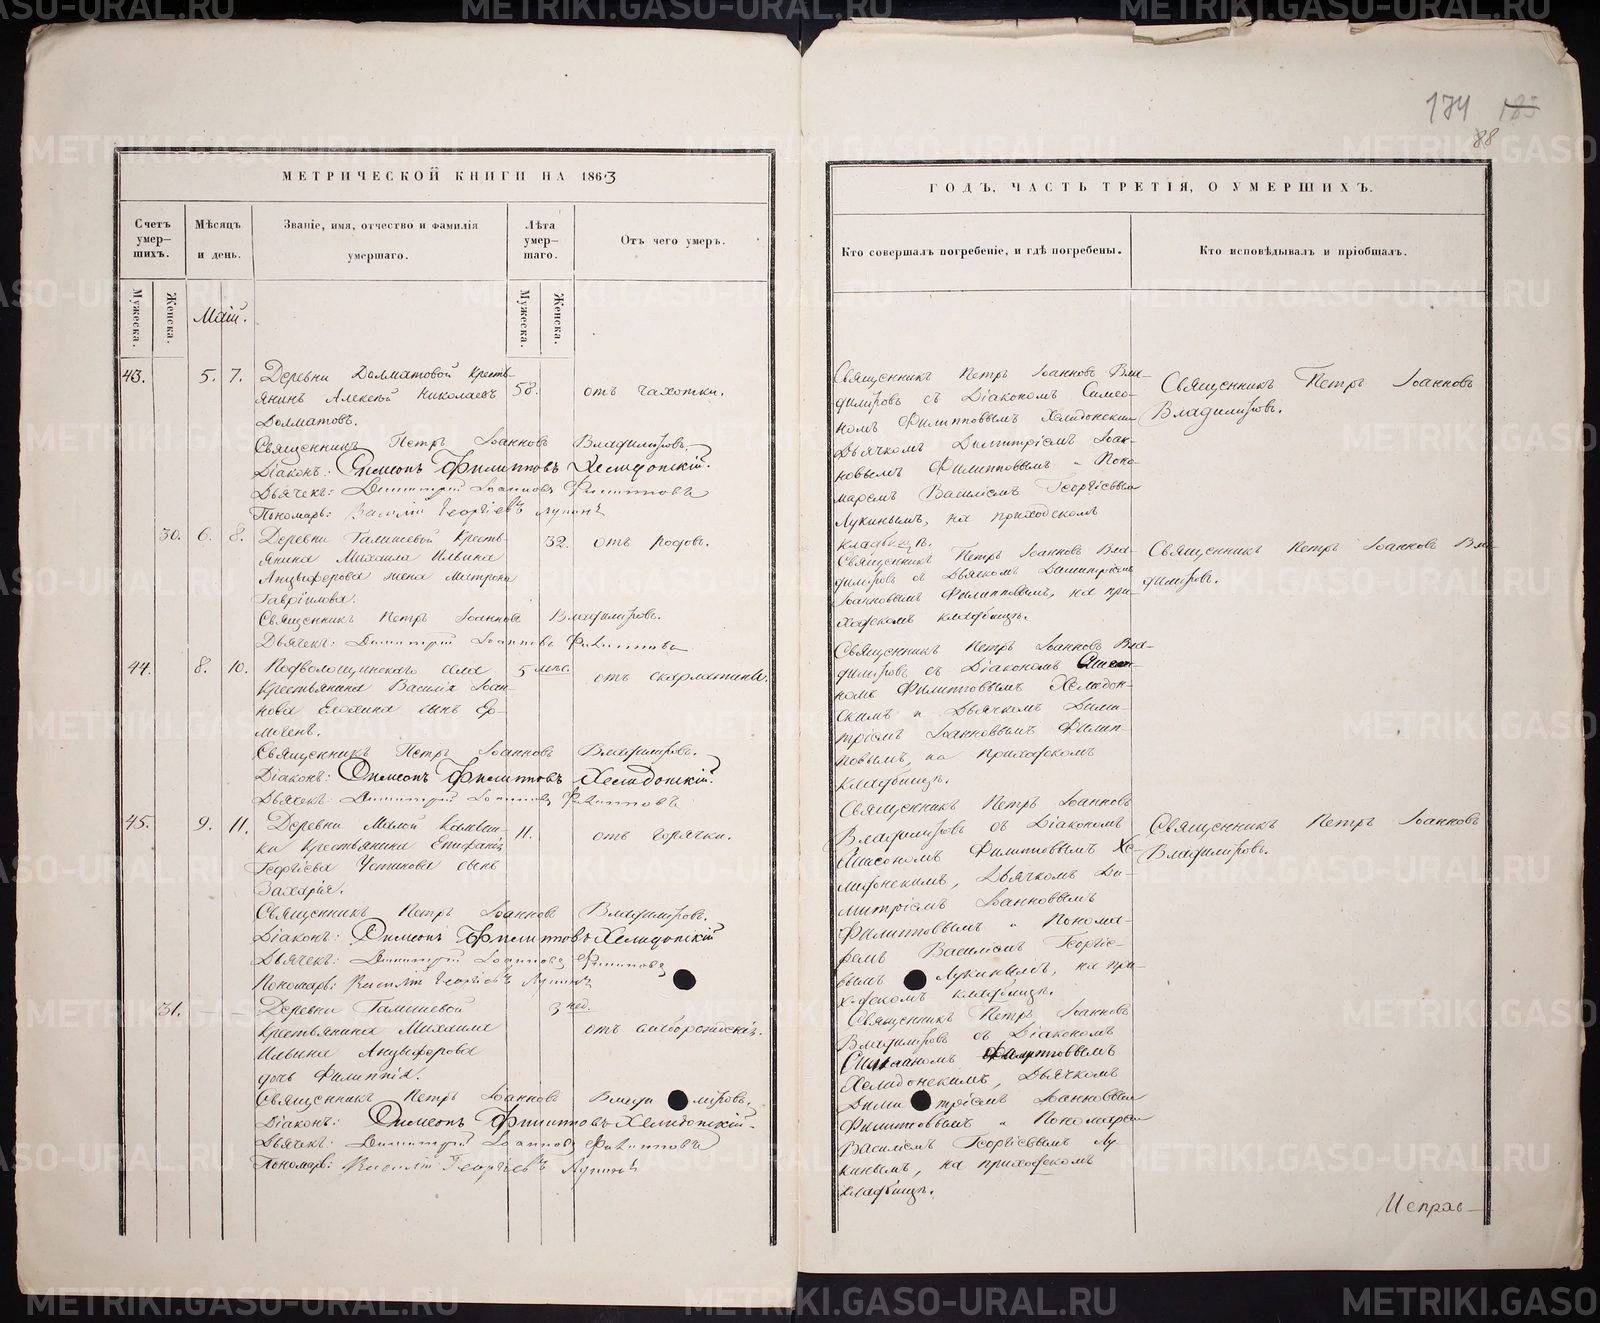 174 185
88
МЕТРИЧЕСКОЙ КНИГИ НА 1863
Счетъ умер-
шихъ.
Мѣсяцъ
и день.
Званіе, имя, отчество и фамилія
умершаго.
Лѣта
умер-
шаго.
Отъ чего умеръ.
Мужеска.
Женска.
Мужеска.
Женска.
Май.
43. 5. 7. Деревни Долматовой кресть- 58. отъ чахотки.
янинъ Алексѣй Николаевъ
Долматовъ.
Священникъ Петръ Іоанновъ Владиміровъ.
Діаконъ: Симеонъ Филипповъ Хелидонскій.
Дьячекъ: Димитрій Іоанновъ Филипповъ
Пономарь: Василій Георгіевъ Лукинъ
30. 6. 8. Деревни Галишевой кресть- 32. отъ родовъ.
янина Михаила Ильина
Анцыферова жена Матрона
Гавріилова.
Священникъ Петръ Іоанновъ Владиміровъ.
Дьячекъ: Димитрій Іоанновъ Филипповъ
44. 8. 10. Подволошинскаго села 5 мѣс. отъ скарлатины.
крестьянина Василія Іоан-
нова Елохина сынъ Ер-
могенъ.
Священникъ Петръ Іоанновъ Владиміровъ.
Діаконъ: Симеонъ Филипповъ Хелидонскій.
Дьячекъ: Димитрій Іоанновъ Филипповъ
45. 9. 11. Деревни Малой 11. отъ горячки.
крестьянина Епифанія
Георгіева Устинова сынъ
Захарія.
Священникъ Петръ Іоанновъ Владиміровъ.
Діаконъ: Симеонъ Филипповъ Хелидонскій
Дьячекъ: Димитрій Іоанновъ Филипповъ
Пономарь: Василій Георгіевъ Лукинъ
31. — — Деревни Галишевой 3 нед.
крестьянина Михаила отъ
Ильина Анцыферова
дочь Филиппія.
Священникъ Петръ Іоанновъ Владиміровъ.
Діаконъ: Симеонъ Филипповъ Хелидонскій.
Дьячекъ: Димитрій Іоанновъ Филипповъ
Пономарь: Василій Георгіевъ Лукинъ
ГОДЪ, ЧАСТЬ ТРЕТІЯ, О УМЕРШИХЪ.
Кто совершалъ погребеніе, и гдѣ погребены.
Кто исповѣдывалъ и пріобщалъ.
Священникъ Петръ Іоанновъ Вла-
диміровъ съ Діакономъ Симео-
номъ Филипповымъ Хелидонскимъ
Дьячкомъ Димитріемъ Іоан-
новымъ Филипповымъ и Поно-
маремъ Василіемъ Георгіевымъ
Лукинымъ, на приходскомъ
кладбищѣ.
Священникъ Петръ Іоанновъ
Владиміровъ.
Священникъ Петръ Іоанновъ Вла-
диміровъ съ Дьячкомъ Димитріемъ
Іоанновымъ Филипповымъ, на при-
ходскомъ кладбищѣ.
Священникъ Петръ Іоанновъ Вла-
диміровъ.
Священникъ Петръ Іоанновъ Вла-
диміровъ съ Діакономъ Симео-
номъ Филипповымъ Хелидон-
скимъ и Дьячкомъ Дими-
тріемъ Іоанновымъ Филип-
повымъ, на приходскомъ
кладбищѣ.
Священникъ Петръ Іоанновъ
Владиміровъ съ Діакономъ
Симеономъ Филипповымъ Хе-
лидонскимъ, Дьячкомъ Ди-
митріемъ Іоанновымъ
Филипповымъ и Понома-
ремъ Василіемъ Георгіе-
вымъ Лукинымъ, на при-
ходскомъ кладбищѣ.
Священникъ Петръ Іоанновъ
Владиміровъ.
Священникъ Петръ Іоанновъ
Владиміровъ съ Діакономъ
Симеономъ Филипповымъ
Хелидонскимъ, Дьячкомъ
Димитріемъ Іоанновымъ
Филипповымъ и Пономаремъ
Василіемъ Георгіевымъ Лу-
кинымъ, на приходскомъ
кладбищѣ.
Исправ-
METRIKI.GASO-URAL.RU